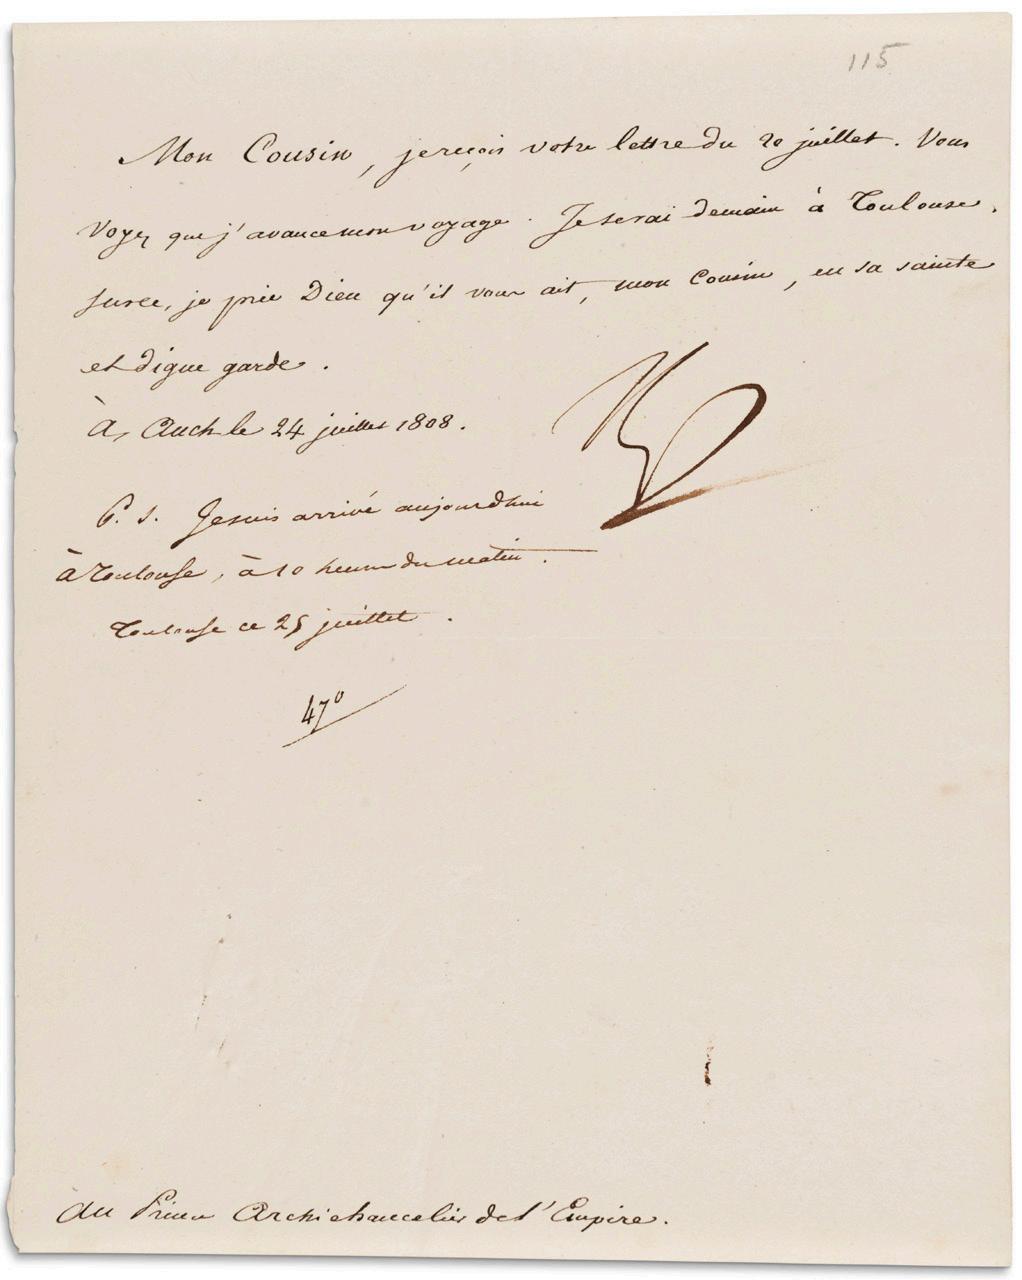 115
Mon Cousin, je reçois votre lettre du 20 juillet. Vous
voyez que j'avance mon voyage. Je serai demain à Toulouse.
Sur ce, je prie Dieu qu'il vous ait, mon Cousin, en sa sainte
et digne garde.
À Auch le 24 juillet 1808.
P. S. Je suis arrivé aujourd'hui
à Toulouse, à 10 heures du matin.
Toulouse ce 25 juillet.
Au Prince Archichancelier de l'Empire.